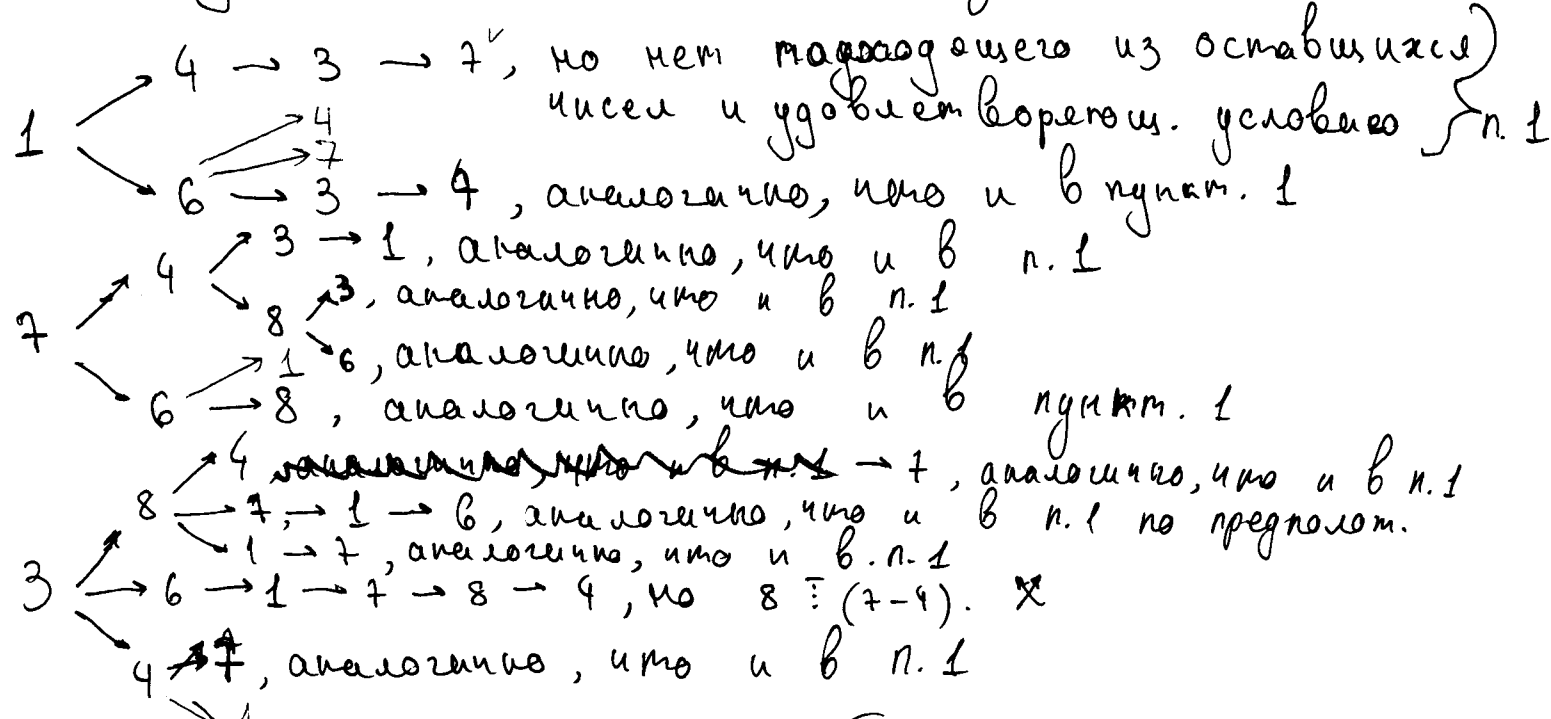 4 → 3 → 7, но нет подходящего из оставшихся
1 4 чисел и удовлетворяющ. условию } п. 1
7
6 → 3 → 4, аналогично, что и в пункт. 1
3 → 1, аналогично, что и в п. 1
4
8 → 3, аналогично, что и в п. 1
7
1 6, аналогично, что и в п. 1
6 → 8, аналогично, что и в пункт. 1
4 → 7, аналогично, что и в п. 1
8 → 7, → 1 → 6, аналогично, что и в п. 1 по предполож.
1 → 7, аналогично, что и в. п. 1
3 → 6 → 1 → 7 → 8 → 4, но 8 ⋮ (7-4). X
4 → 7, аналогично, что и в п. 1